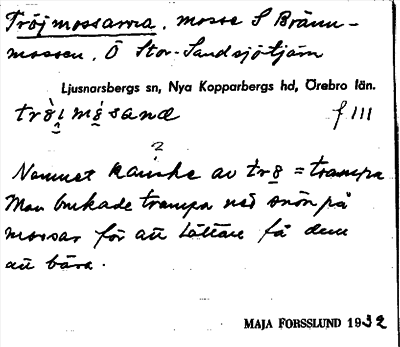 Tröjmossarna, mosse S Bränn-
mossen, Ö Stor-Sandsjötjärn
Ljusnarsbergs sn, Nya Kopparbergs hd, Örebro län.
f III
?
Namnet kanske av trø = trampa
Man brukade trampa ned snön på
mossar för att lättare få dem
att bära.
MAJA FORSSLUND 1932